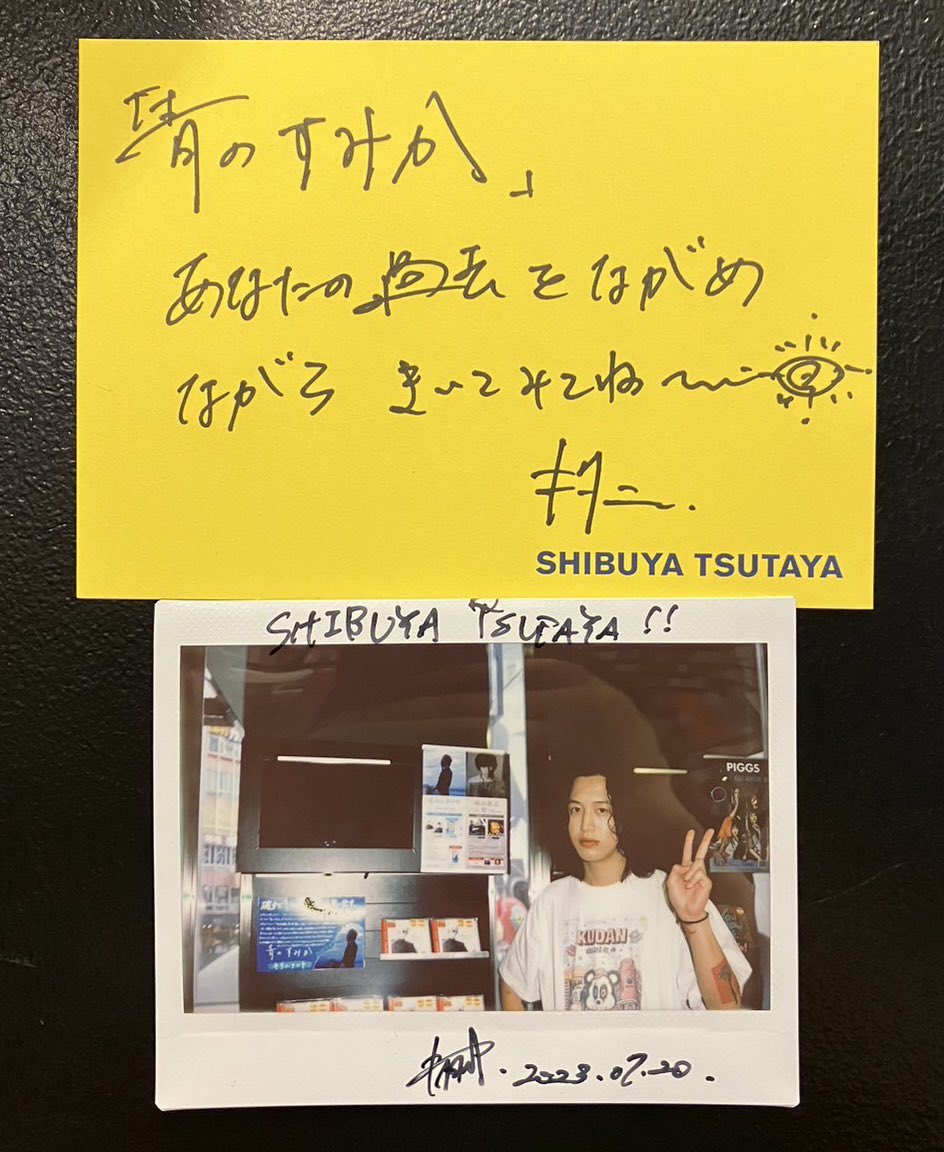 「青のすみか」
あなたの過去をながめ
ながら きいてみてね
キタニ.
SHIBUYA TSUTAYA
SHIBUYA TSUTAYA!!
PIGGS
青のすみか
KUDAN
2023.07.20.